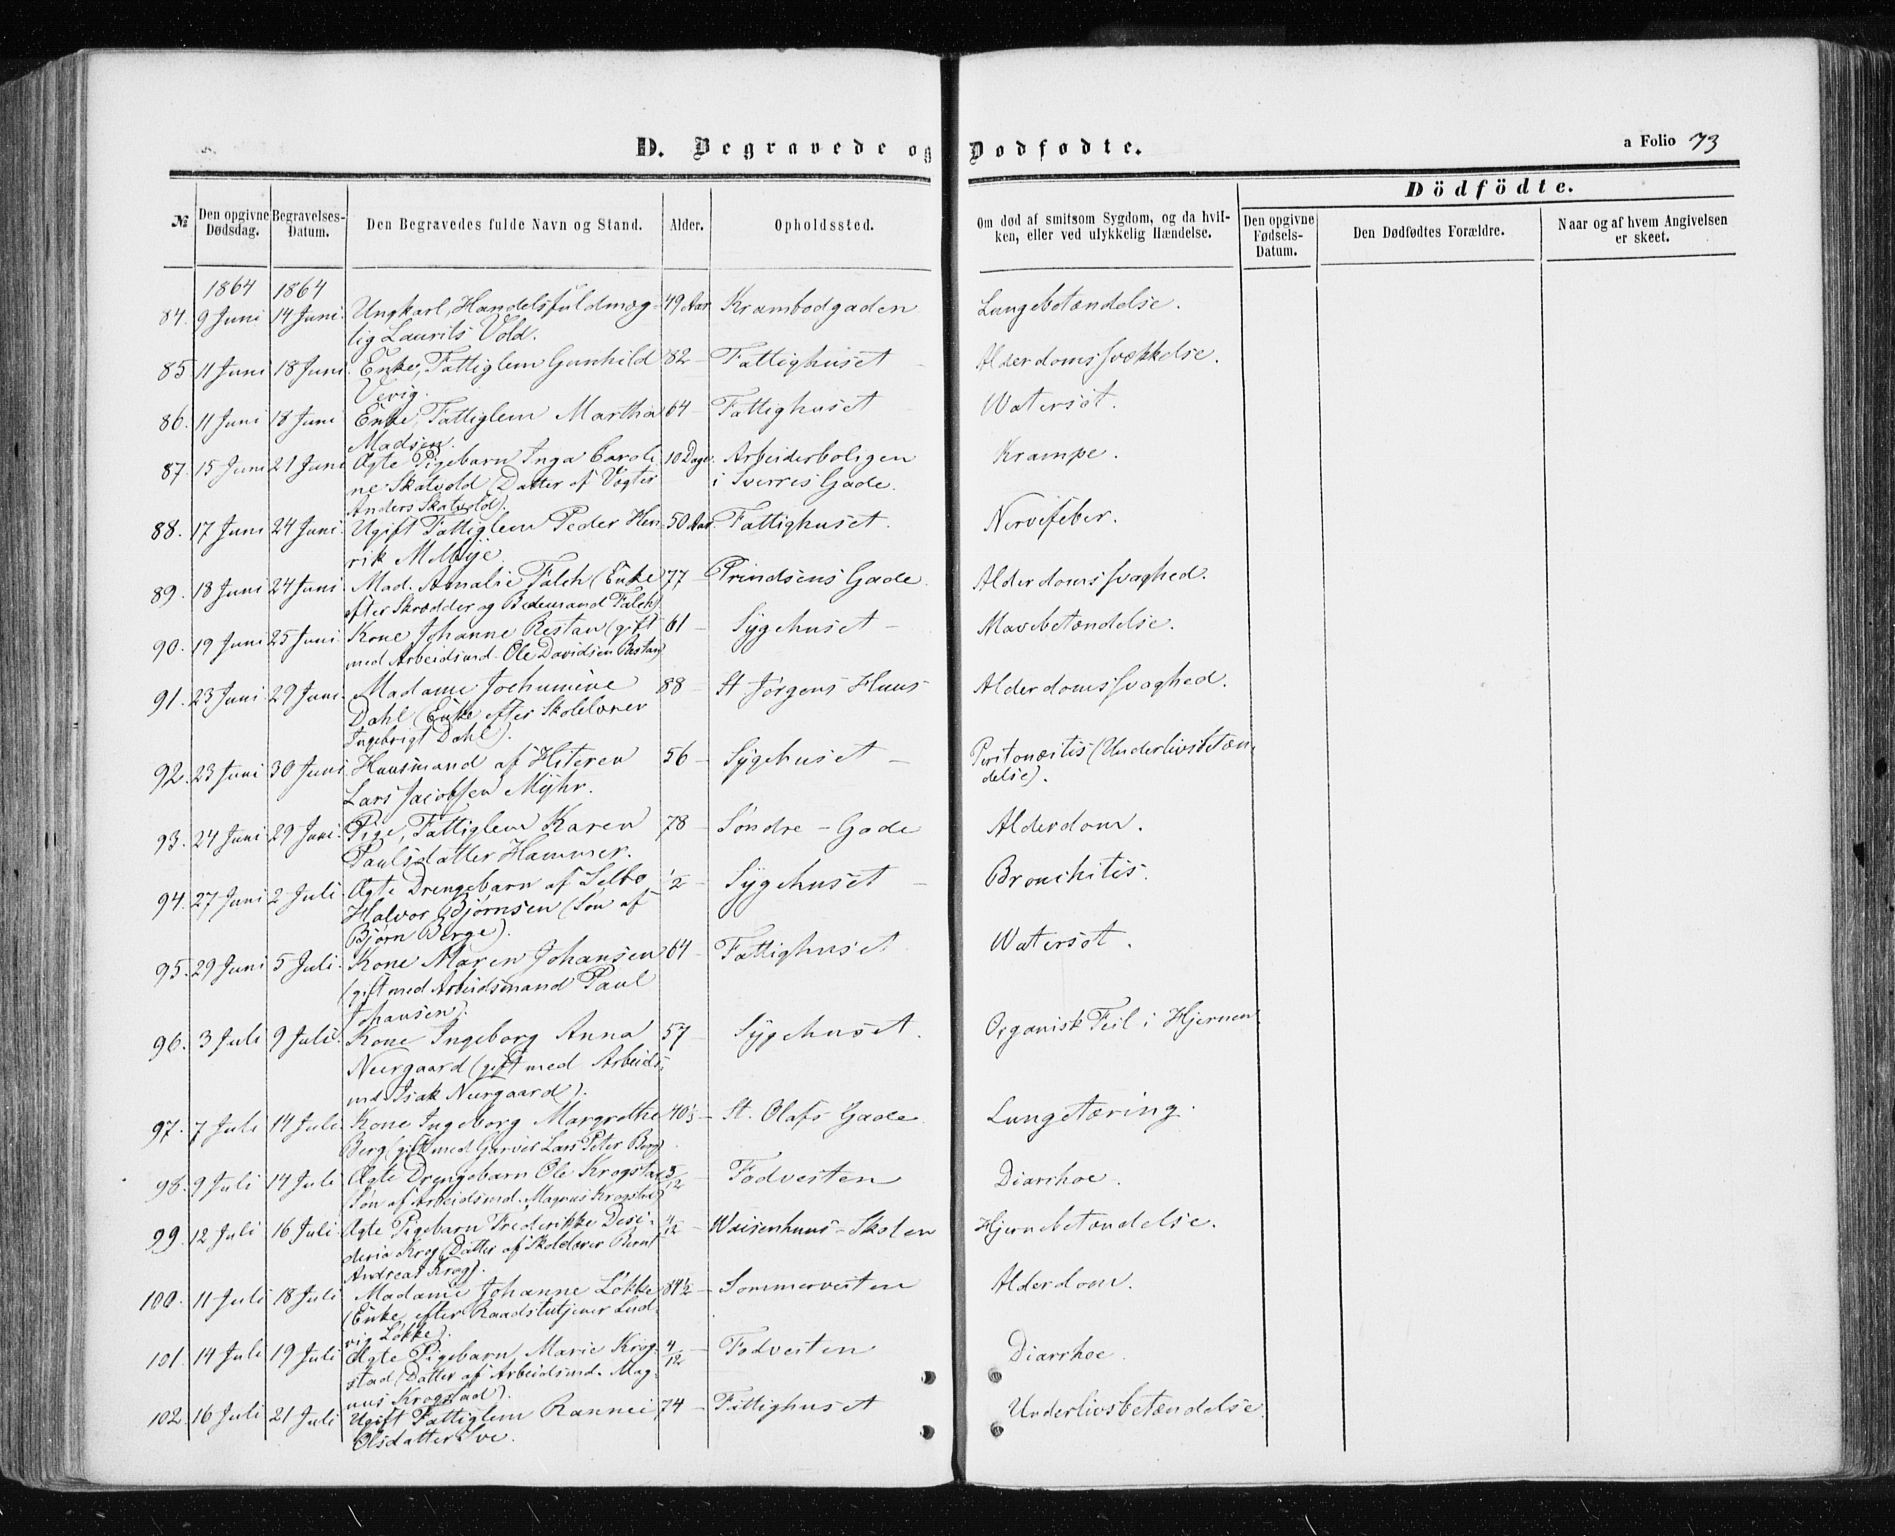 D. Begravede og Dodfødte.
a Folio 73
Dödfödte.
№ Den opgivne Dødsdag. Begravelses-Datum. Den Begravedes fulde Navn og Stand. Alder. Opholdssted. Om død af smitsom Sygdom, og da hvilken, eller ved ulykkelig Hændelse. Den opgivne Fødsels-Datum. Den Dødfødtes Forældre. Naar og af hvem Angivelsen er skeet.
1864 1864
84. 9 Juni 14 Juni Ungkarl, Handelsfuldmæg- 49 Aar Krambodgaden Lungebetændelse.
lig Laurits Vold.
85 11 Juni 18 Juni Enke, Fattiglem Gunhild 82 – Fattighuset – Alderdomssvækkelse.
Vevig.
86. 11 Juni 18 Juni Enke, Fattiglem Martha 64 – Fattighuset Watersot.
Madsen.
87. 15 Juni 21 Juni Ægte Pigebarn Inga Caroli- 10 Dage. Arbeiderboligen Krampe.
ne Skatvold (Datter af Vogter i Sverres Gade.
Anders Skatvold).
88. 17 Juni 24 Juni Ugift Fattiglem Peder Hen- 50 Aar. Fattighuset. Nervefeber.
rik Melbye
89. 18 Juni 24 Juni. Mad. Amalie Falch (Enke 77 – Prindsens Gade. Alderdomssvaghed.
efter Skrædder og Bedemand Falch)
90. 19 Juni 25 Juni Kone Johanne Restan (gift 61 – Sygehuset – Mavebetændelse.
med Arbeidsmd. Ole Davidsen Restan)
91. 23 Juni 29 Juni. Madame Jochumine 88 – St Jørgens Huus Alderdomssvaghed.
Dahl (Enke efter Skolelærer
Ingebrigt Dahl).
92. 23 Juni 30 Juni Huusmand af Hiteren 56 – Sygehuset – Peritonæitis (Underlivsbetæn-
Lars Jacobsen Myhr. delse).
93. 24 Juni 29 Juni. Pige, Fattiglem Karen 78 – Söndre – Gade Alderdom.
Paulsdatter Hammer.
94. 27 Juni 2 Juli Ægte Drengebarn af Selbo ½ – Sygehuset – Bronchitis.
Halvor Bjørnsen (Søn af
Bjørn Berge).
95. 29 Juni 5 Juli. Kone Maren Johansen 64 – Fattighuset Watersot.
(gift med Arbeidsmand Paul
Johansen).
96. 3 Juli 9 Juli. Kone Ingeborg Anna 57 – Sygehuset. Organisk Feil i Hjernen.
Neergaard (gift med Arbeids-
md. Isak Neergaard).
97. 7 Juli 14 Juli. Kone Ingeborg Margrethe 40½ – St. Olafs Gade Lungetæring.
Berg (gift med Garver Lars Peter Berg)
98. 9 Juli 14 Juli Ægte Drengebarn Ole Krogstad 3/12 – Fodvesten Diarrhoe.
(Søn af Arbeidsmd. Magnus Krogstad)
99. 12 Juli 16 Juli. Ægte Pigebarn Frederikke Desi- 4/12 – Waisenhuus-Skolen Hjernebetændelse.
deria Krog (Datter af Skolelærer Bernt
Andreas Krog).
100. 11 Juli 18 Juli Madame Johanne Løkke 84½ – Sommervesten Alderdom.
(Enke efter Raadstutjener Lud-
vig Løkke).
101. 14 Juli 19 Juli Ægte Pigebarn Marie Krog- 4/12 – Fodvesten Diarrhoe.
stad (Datter af Arbeidsmd. Mag-
nus Krogstad).
102. 16 Juli 21 Juli Ugift Fattiglem Rannei 74 – Fattighuset Underlivsbetændelse.
Olsdatter Sve.